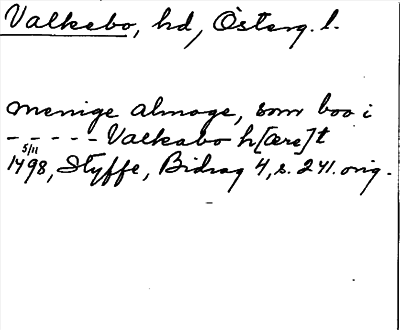 Valkebo, hd, Österg. l.
menige almoge, som boo i
----- Valkabo h[ære]t
5/11
1498, Styffe, Bidrag 4, s. 241. orig.